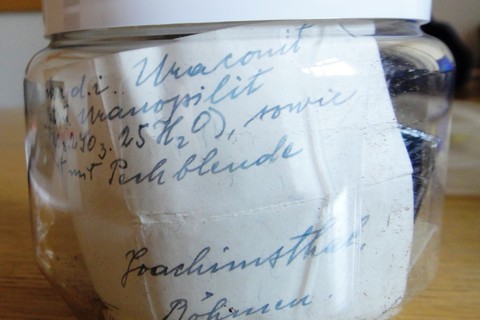 d.i. Uraconit
Uranopilit
2SO3. 25H2O), sowie
mit Pechblende
Joachimsthal,
Böhmen.